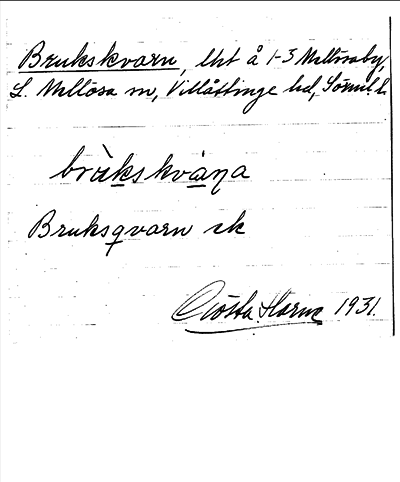 Brukskvarn, lht å 1-3 Mellösaby,
L. Mellösa sn, Villåttinge hd, Sörml. l.
bràkskvàna
Bruksqvarn ek
Gösta Horne 1931.